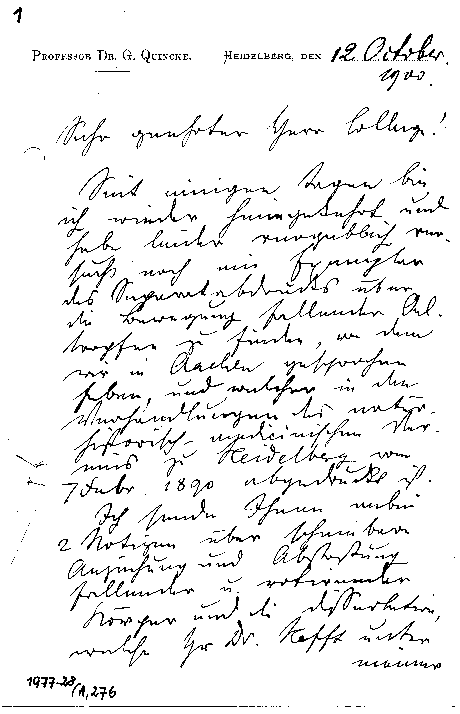 1
PROFESSOR DR. G. QUINCKE. HEIDELBERG, DEN 12 October
1900.
Sehr geehrter Herr College!
Seit einigen Tagen bin
ich wieder heimgekehrt und
habe leider vergeblich ver-
sucht noch ein Exemplar
des Separatabdrucks über
die Bewegung fallender Oel-
tropfen zu finden, von dem
wir in Aachen gesprochen
haben, und welcher in den
Verhandlungen des natur-
historisch-medicinischen Ver-
eins zu Heidelberg vom
7 Febr. 1890 abgedruckt ist.
Ich sende Ihnen anbei
2 Notizen über scheinbare
Anziehung und Abstossung
fallender u. rotierender
Körper und die Dissertation,
welche Hr Dr. Hefft unter
meiner
1977-28/A,276